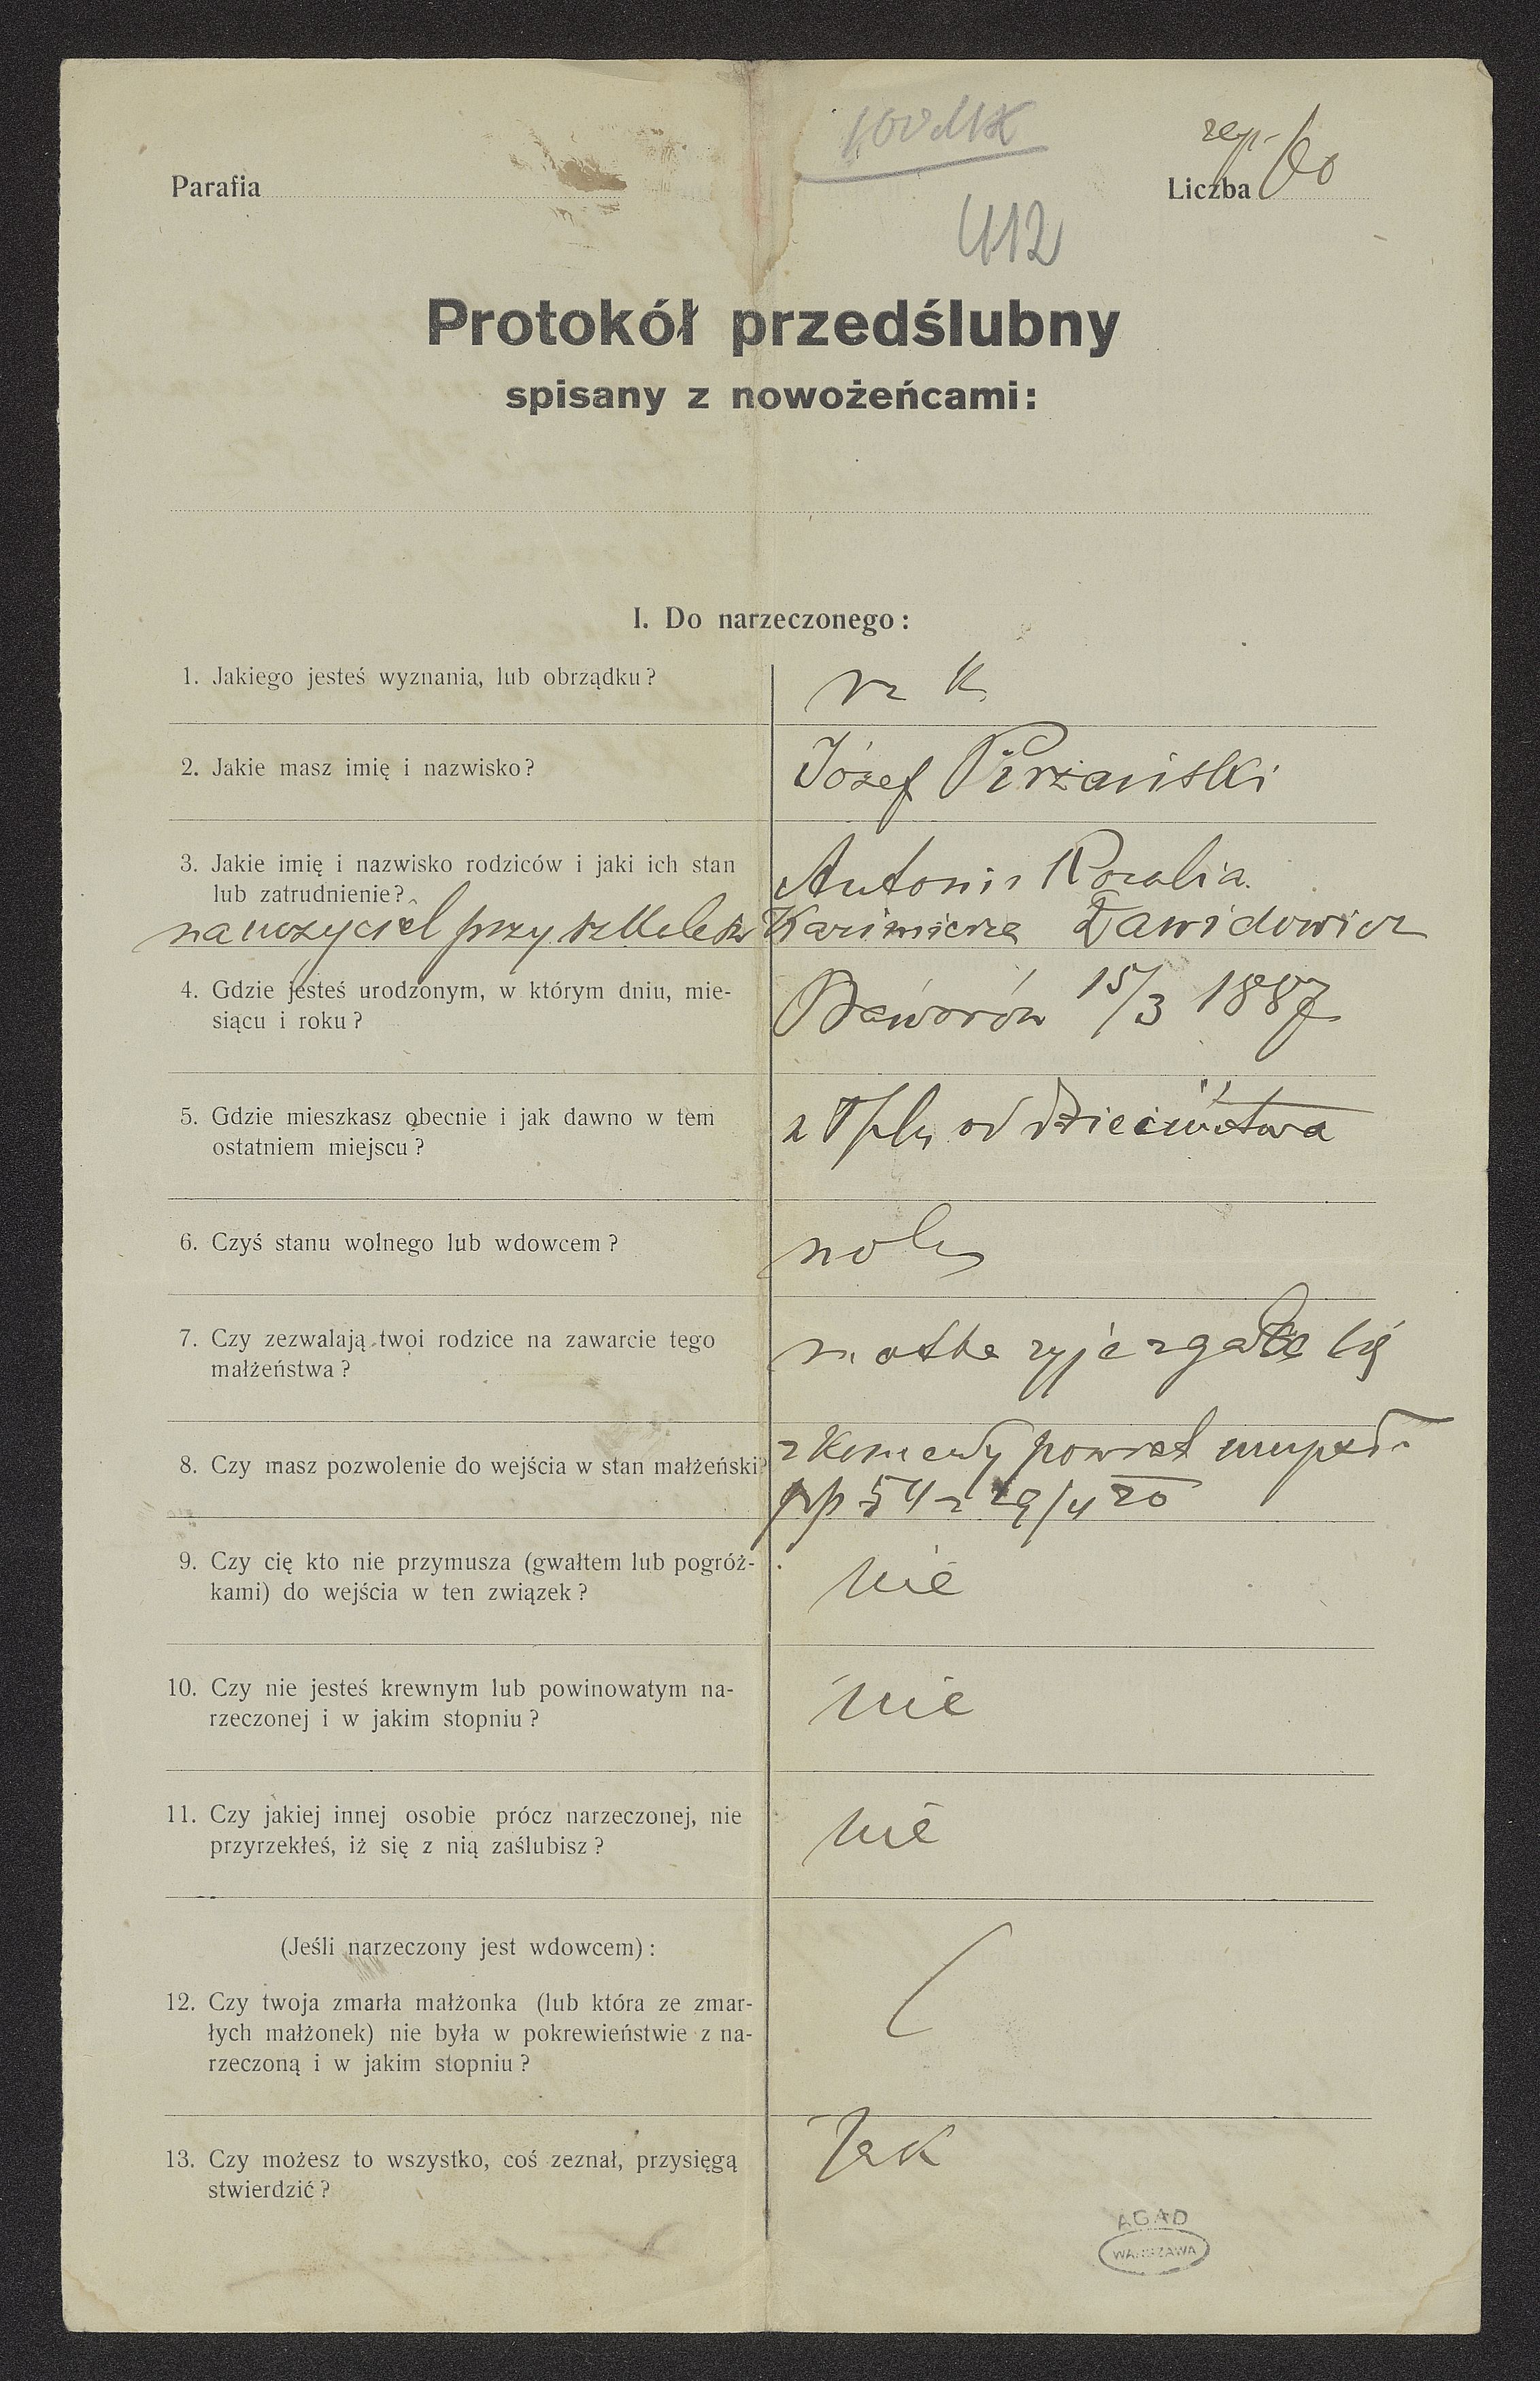 rep.
Parafia
Liczba 60
412
Protokół przedślubny
spisany z nowożeńcami:
I. Do narzeczonego:
1. Jakiego jesteś wyznania, lub obrządku?
rz k
2. Jakie masz imię i nazwisko?
Józef Pirżański
3. Jakie imię i nazwisko rodziców i jaki ich stan
lub zatrudnienie?
Antoni i Rozalia
nauczyciel przy
Kazimierza Dawidowicz
4. Gdzie jesteś urodzonym, w którym dniu, mie-
siącu i roku?
Baworów 15/3 1887
5. Gdzie mieszkasz obecnie i jak dawno w tem
ostatniem miejscu?
od dzieciństwa
6. Czyś stanu wolnego lub wdowcem?
wolny
7. Czy zezwalają twoi rodzice na zawarcie tego
małżeństwa?
matka żyje zgadza się
8. Czy masz pozwolenie do wejścia w stan małżeński?
z Komendy powiat
pp 54 z 29/4 20
9. Czy cię kto nie przymusza (gwałtem lub pogróż-
kami) do wejścia w ten związek?
nie
10. Czy nie jesteś krewnym lub powinowatym na-
rzeczonej i w jakim stopniu?
nie
11. Czy jakiej innej osobie prócz narzeczonej, nie
przyrzekłeś, iż się z nią zaślubisz?
nie
(Jeśli narzeczony jest wdowcem):
12. Czy twoja zmarła małżonka (lub która ze zmar-
łych małżonek) nie była w pokrewieństwie z na-
rzeczoną i w jakim stopniu?
13. Czy możesz to wszystko, coś zeznał, przysięgą
stwierdzić?
Tak
AGAD
WARSZAWA